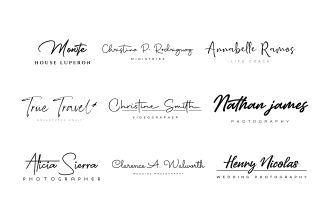 Monte
HOUSE LUPERON
Christina P. Rodriguez
MINISTRIES
Annabelle Ramos
LIFE COACH
True Travel
Christine Smith
VIDEOGRAPHER
Nathan james
PHOTOGRAPHY
Alicia Sierra
PHOTOGRAPHER
Clarence A. Walworth
WEDDING PHOTOGRAPHY
Henry Nicolas
WEDDING PHOTOGRAPHY